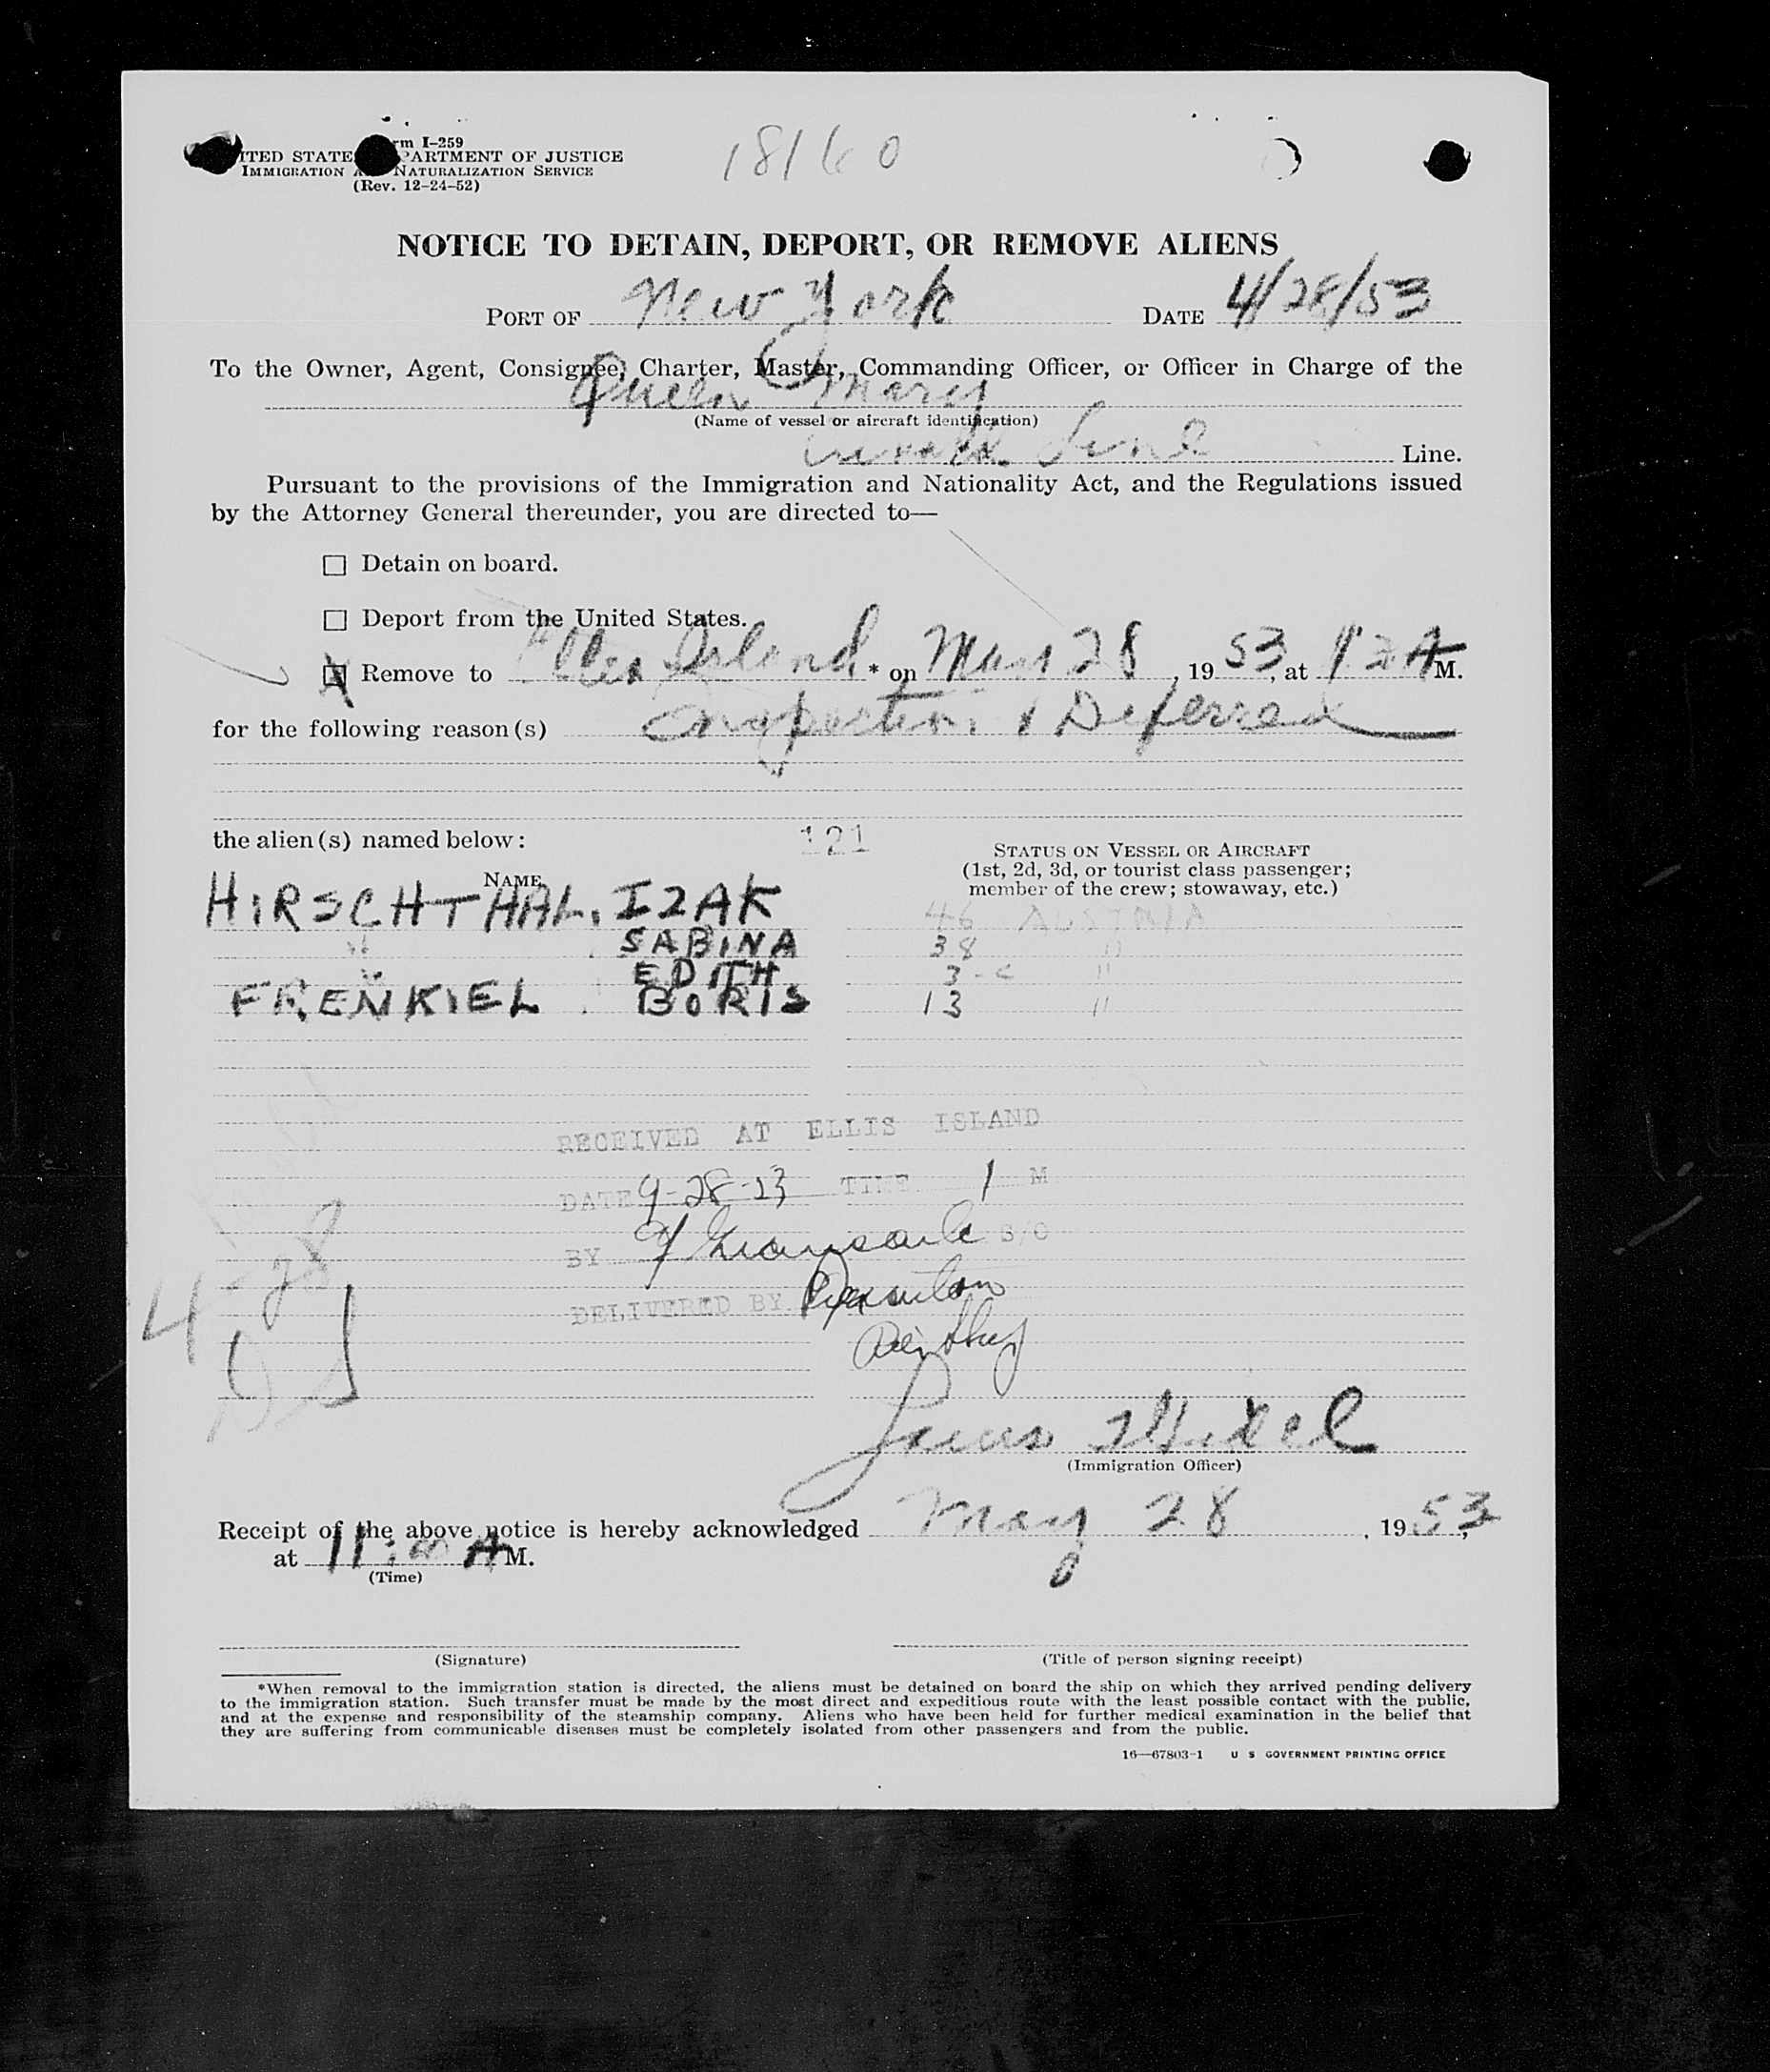 rm I-259
ITED STATE PARTMENT OF JUSTICE
IMMIGRATION NATURALIZATION SERVICE
(Rev. 12-24-52)
18160
NOTICE TO DETAIN, DEPORT, OR REMOVE ALIENS
PORT OF New York DATE 4/28/53
To the Owner, Agent, Consignee, Charter, Master, Commanding Officer, or Officer in Charge of the
Queen Mary
(Name of vessel or aircraft identification)
Line Line.
Pursuant to the provisions of the Immigration and Nationality Act, and the Regulations issued
by the Attorney General thereunder, you are directed to—
☐ Detain on board.
☐ Deport from the United States.
☒ Remove to Ellis Island * on 28, 1953, at 12 A M.
for the following reason(s) Inspection Deferred
the alien(s) named below:
121
NAME
STATUS ON VESSEL OR AIRCRAFT
(1st, 2d, 3d, or tourist class passenger;
member of the crew; stowaway, etc.)
HIRSCHTHAL, IZAK 46 AUSTRIA
" SABINA 38 "
" EDITH 3 "
FRENKIEL BORIS 13 "
RECEIVED AT ELLIS ISLAND
DATE TIME 1 M
BY S/O
DELIVERED BY
4-28
(Immigration Officer)
Receipt of the above notice is hereby acknowledged May 28, 1953,
at 11:00 A M.
(Time)
(Signature)
(Title of person signing receipt)
*When removal to the immigration station is directed, the aliens must be detained on board the ship on which they arrived pending delivery
to the immigration station. Such transfer must be made by the most direct and expeditious route with the least possible contact with the public,
and at the expense and responsibility of the steamship company. Aliens who have been held for further medical examination in the belief that
they are suffering from communicable diseases must be completely isolated from other passengers and from the public.
16—67803-1 U S GOVERNMENT PRINTING OFFICE